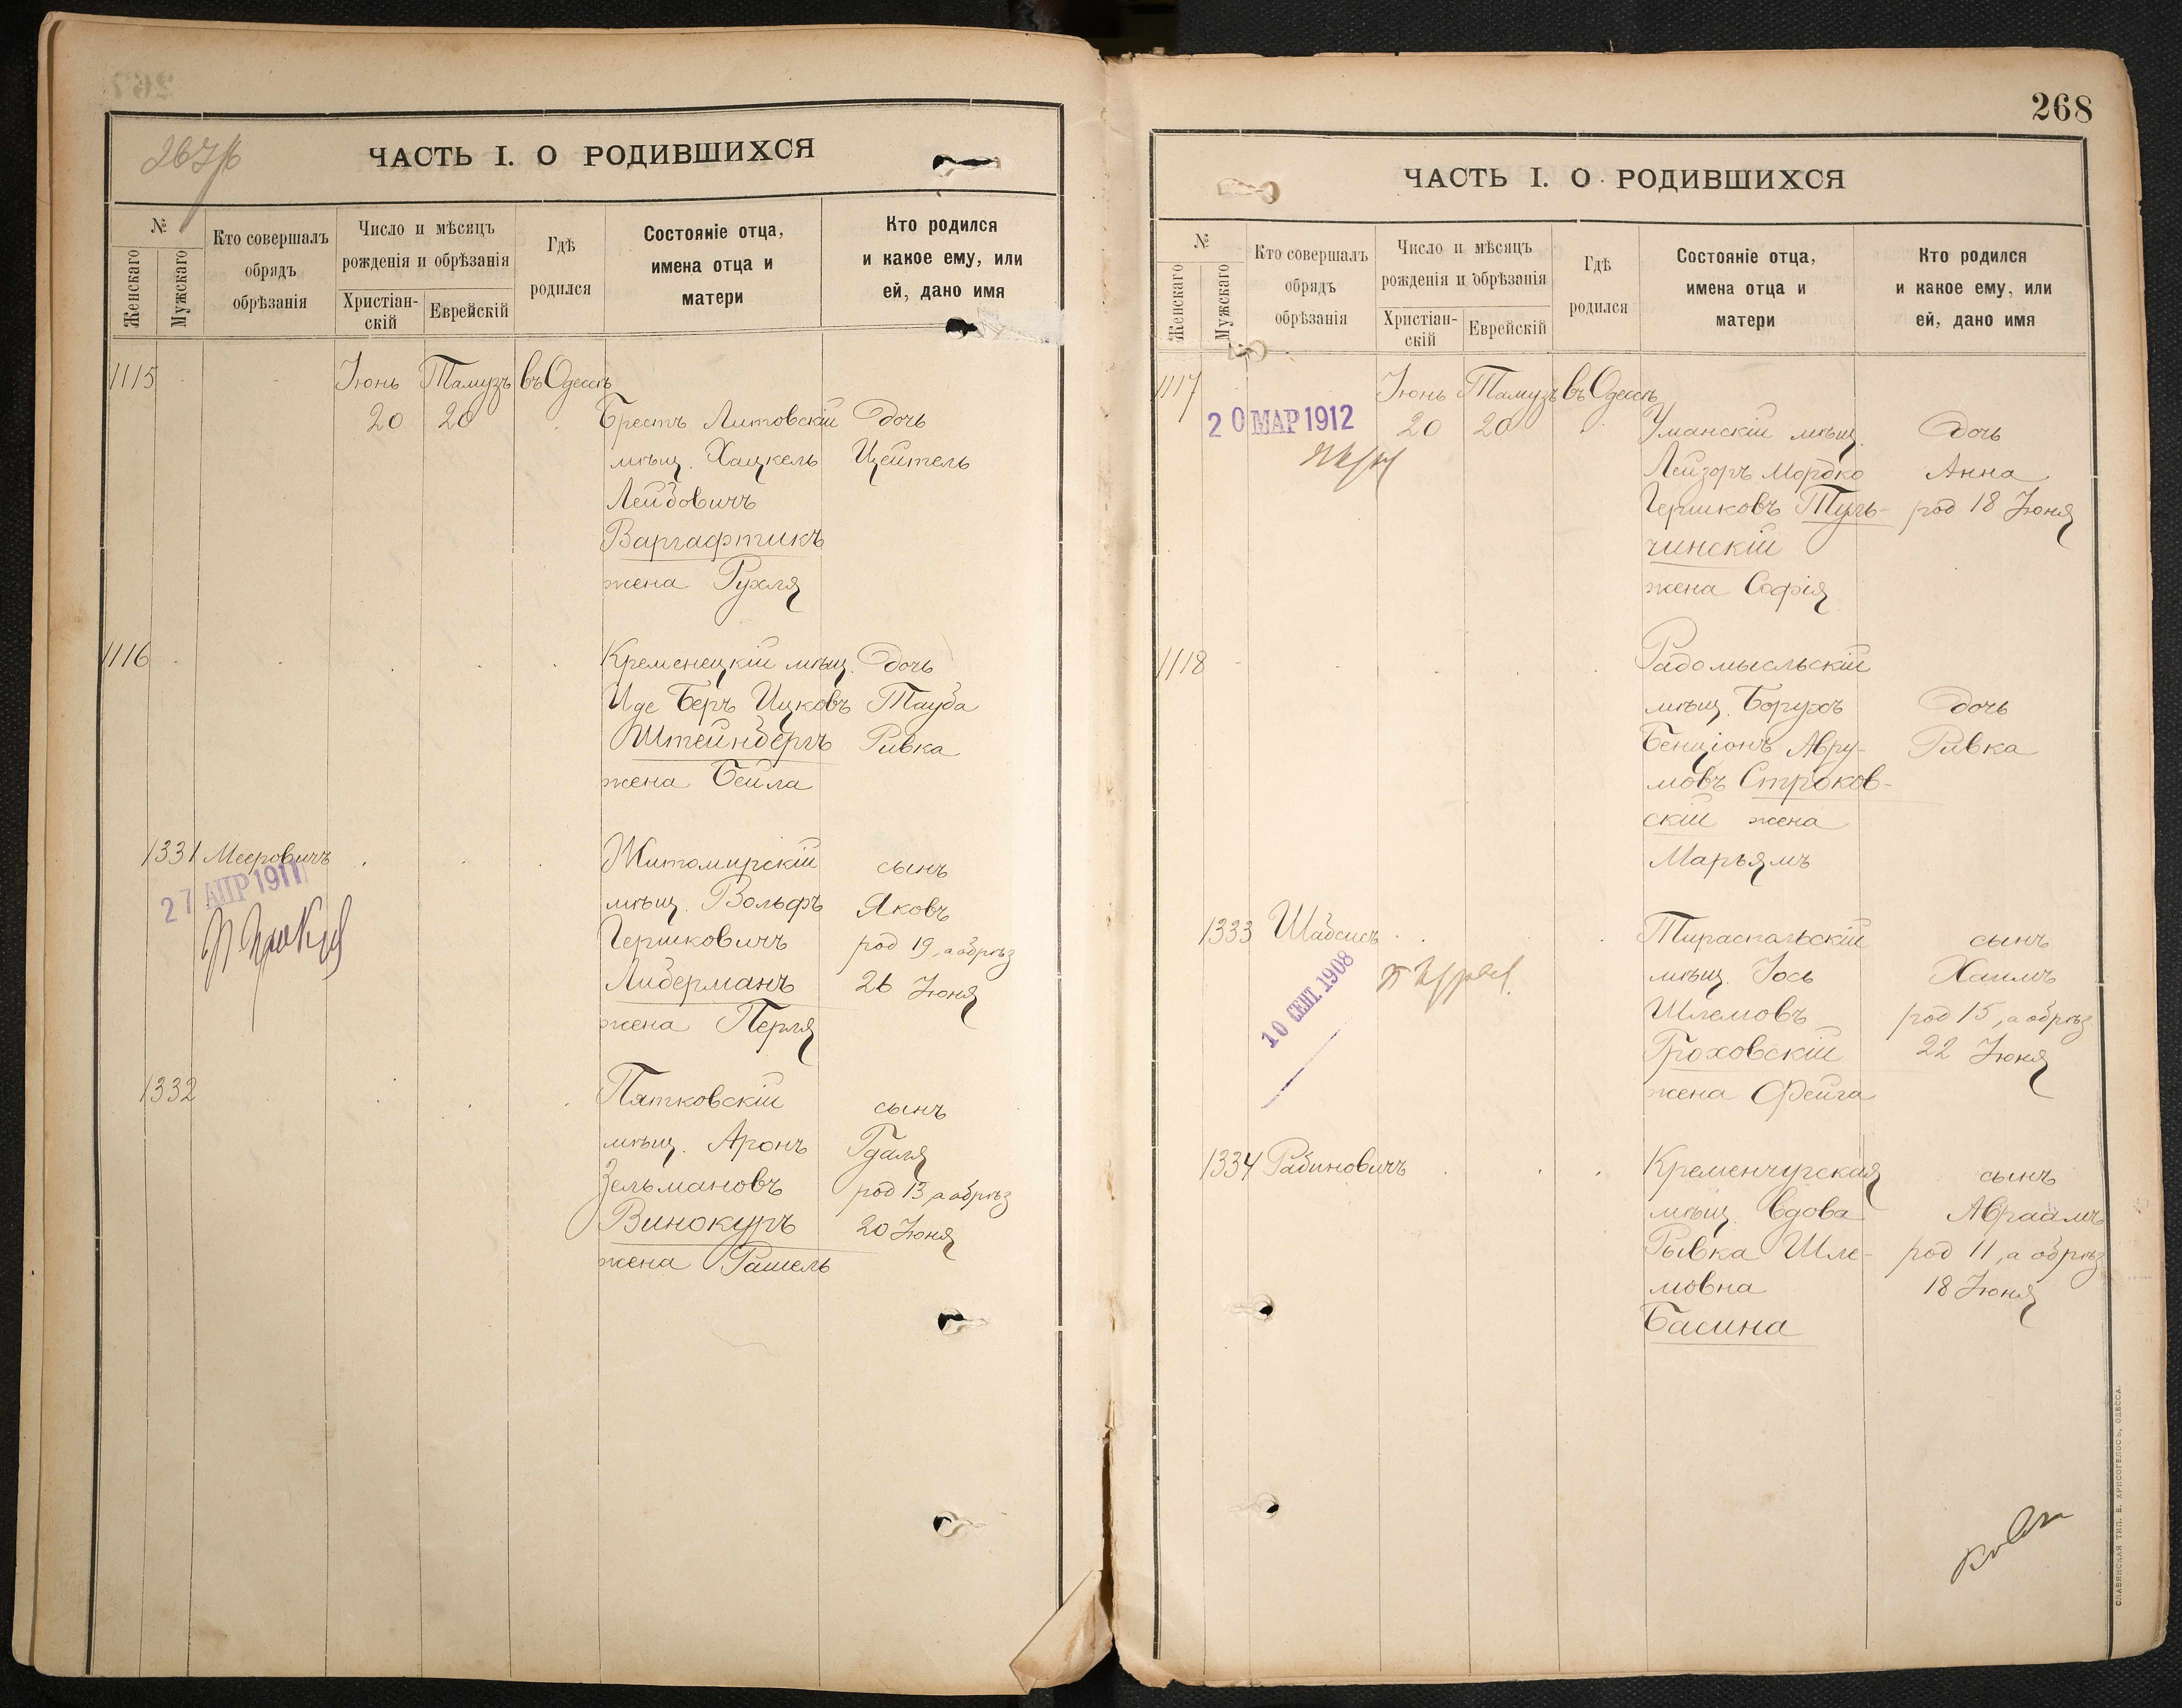 ЧАСТЬ I. О РОДИВШИХСЯ
№
Женскаго
Мужскаго
Кто совершалъ
обрядъ
обрѣзанія
Число и мѣсяцъ
рожденія и обрѣзанія
Христіан-
скій
Еврейскій
Гдѣ
родился
Состояніе отца,
имена отца и
матери
Кто родился
и какое ему, или
ей, дано имя
1115 Іюнь Тамузъ въ Одессѣ
20 20 Брестъ Литовскій дочь
мѣщ. Хацкель Цейтель
Лейбовичъ
Варгафтикъ
жена Рухля
1116 Кременецкій мѣщ. дочь
Иде Беръ Ицковъ Тауба
Штейнбергъ Ривка
жена Бейла
1331 Мееровичъ Житомирскій сынъ
27 АПР 1911
мѣщ. Вольфъ Яковъ
Гершковичъ род 19, а обрѣз
Либерманъ 26 Іюня
жена Перля
1332 Пятковскій сынъ
мѣщ. Аронъ Гдаля
Зельмановъ род 13, а обрѣз
Винокуръ 20 Іюня
жена Рашель
268
ЧАСТЬ I. О РОДИВШИХСЯ
№
Женскаго
Мужскаго
Кто совершалъ
обрядъ
обрѣзанія
Число и мѣсяцъ
рожденія и обрѣзанія
Христіан-
скій
Еврейскій
Гдѣ
родился
Состояніе отца,
имена отца и
матери
Кто родился
и какое ему, или
ей, дано имя
1117 Іюнь Тамузъ въ Одессѣ
20 МАР 1912
20 20 Уманскій мѣщ. дочь
Лейзоръ Мордко Анна
Гершковъ Туль- род 18 Іюня
чинскій
жена Софія
1118 Радомысльскій
мѣщ. Борухъ дочь
Бенціонъ Авру- Ривка
мовъ Строков-
скій жена
Марьямъ
1333 Шабсисъ Тираспольскій сынъ
10 СЕНТ. 1908
мѣщ. Іось Хаимъ
Шлемовъ род 15, а обрѣз
Гроховскій 22 Іюня
жена Фейга
1334 Рабиновичъ Кременчугская сынъ
мѣщ. вдова Авраамъ
Рывка Шле- род 11, а обрѣз
мовна 18 Іюня
Басина
СЛАВЯНСКАЯ ТИП. Е. ХРИСОГЕЛОСЪ, ОДЕССА.